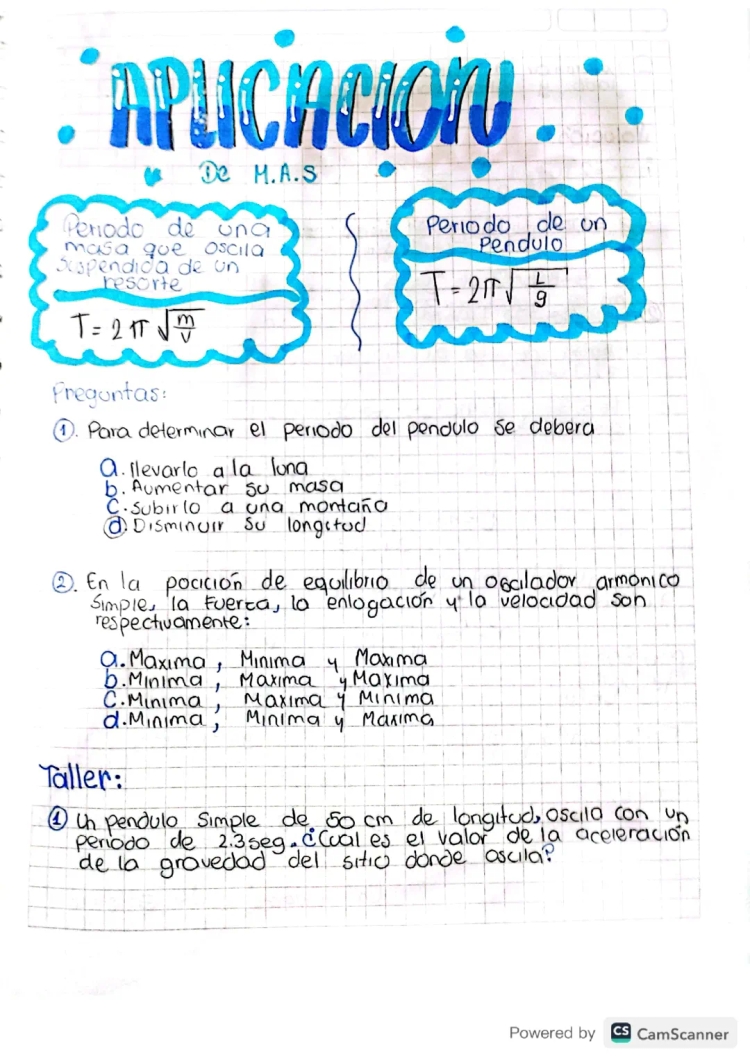 APLICACION
De M.A.S
Periodo de una
masa que oscila
suspendida de un
resorte
T = 2 π √m/v
Periodo de un
Pendulo
T = 2π √L/g
Preguntas:
①. Para determinar el periodo del pendulo se debera
a. llevarlo a la luna
b. Aumentar su masa
C. Subirlo a una montaña
d. Disminuir su longitud
②. En la pocición de equilibrio de un oscilador armonico
Simple, la Fuerza, la enlogación y la velocidad son
respectivamente:
a. Maxima, Minima y Maxima
b. Minima, Maxima y Maxima
C. Minima, Maxima y Minima
d. Minima, Minima y Maxima
Taller:
① Un pendulo Simple de 50 cm de longitud, oscila con un
periodo de 2.3 seg. ¿Cuál es el valor de la aceleración
de la gravedad del sitio donde oscila?
Powered by CS CamScanner